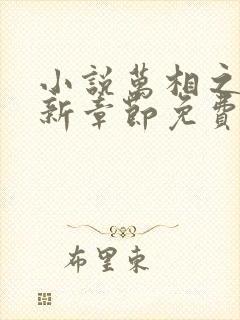 小說萬相之
新章節免費
布里東